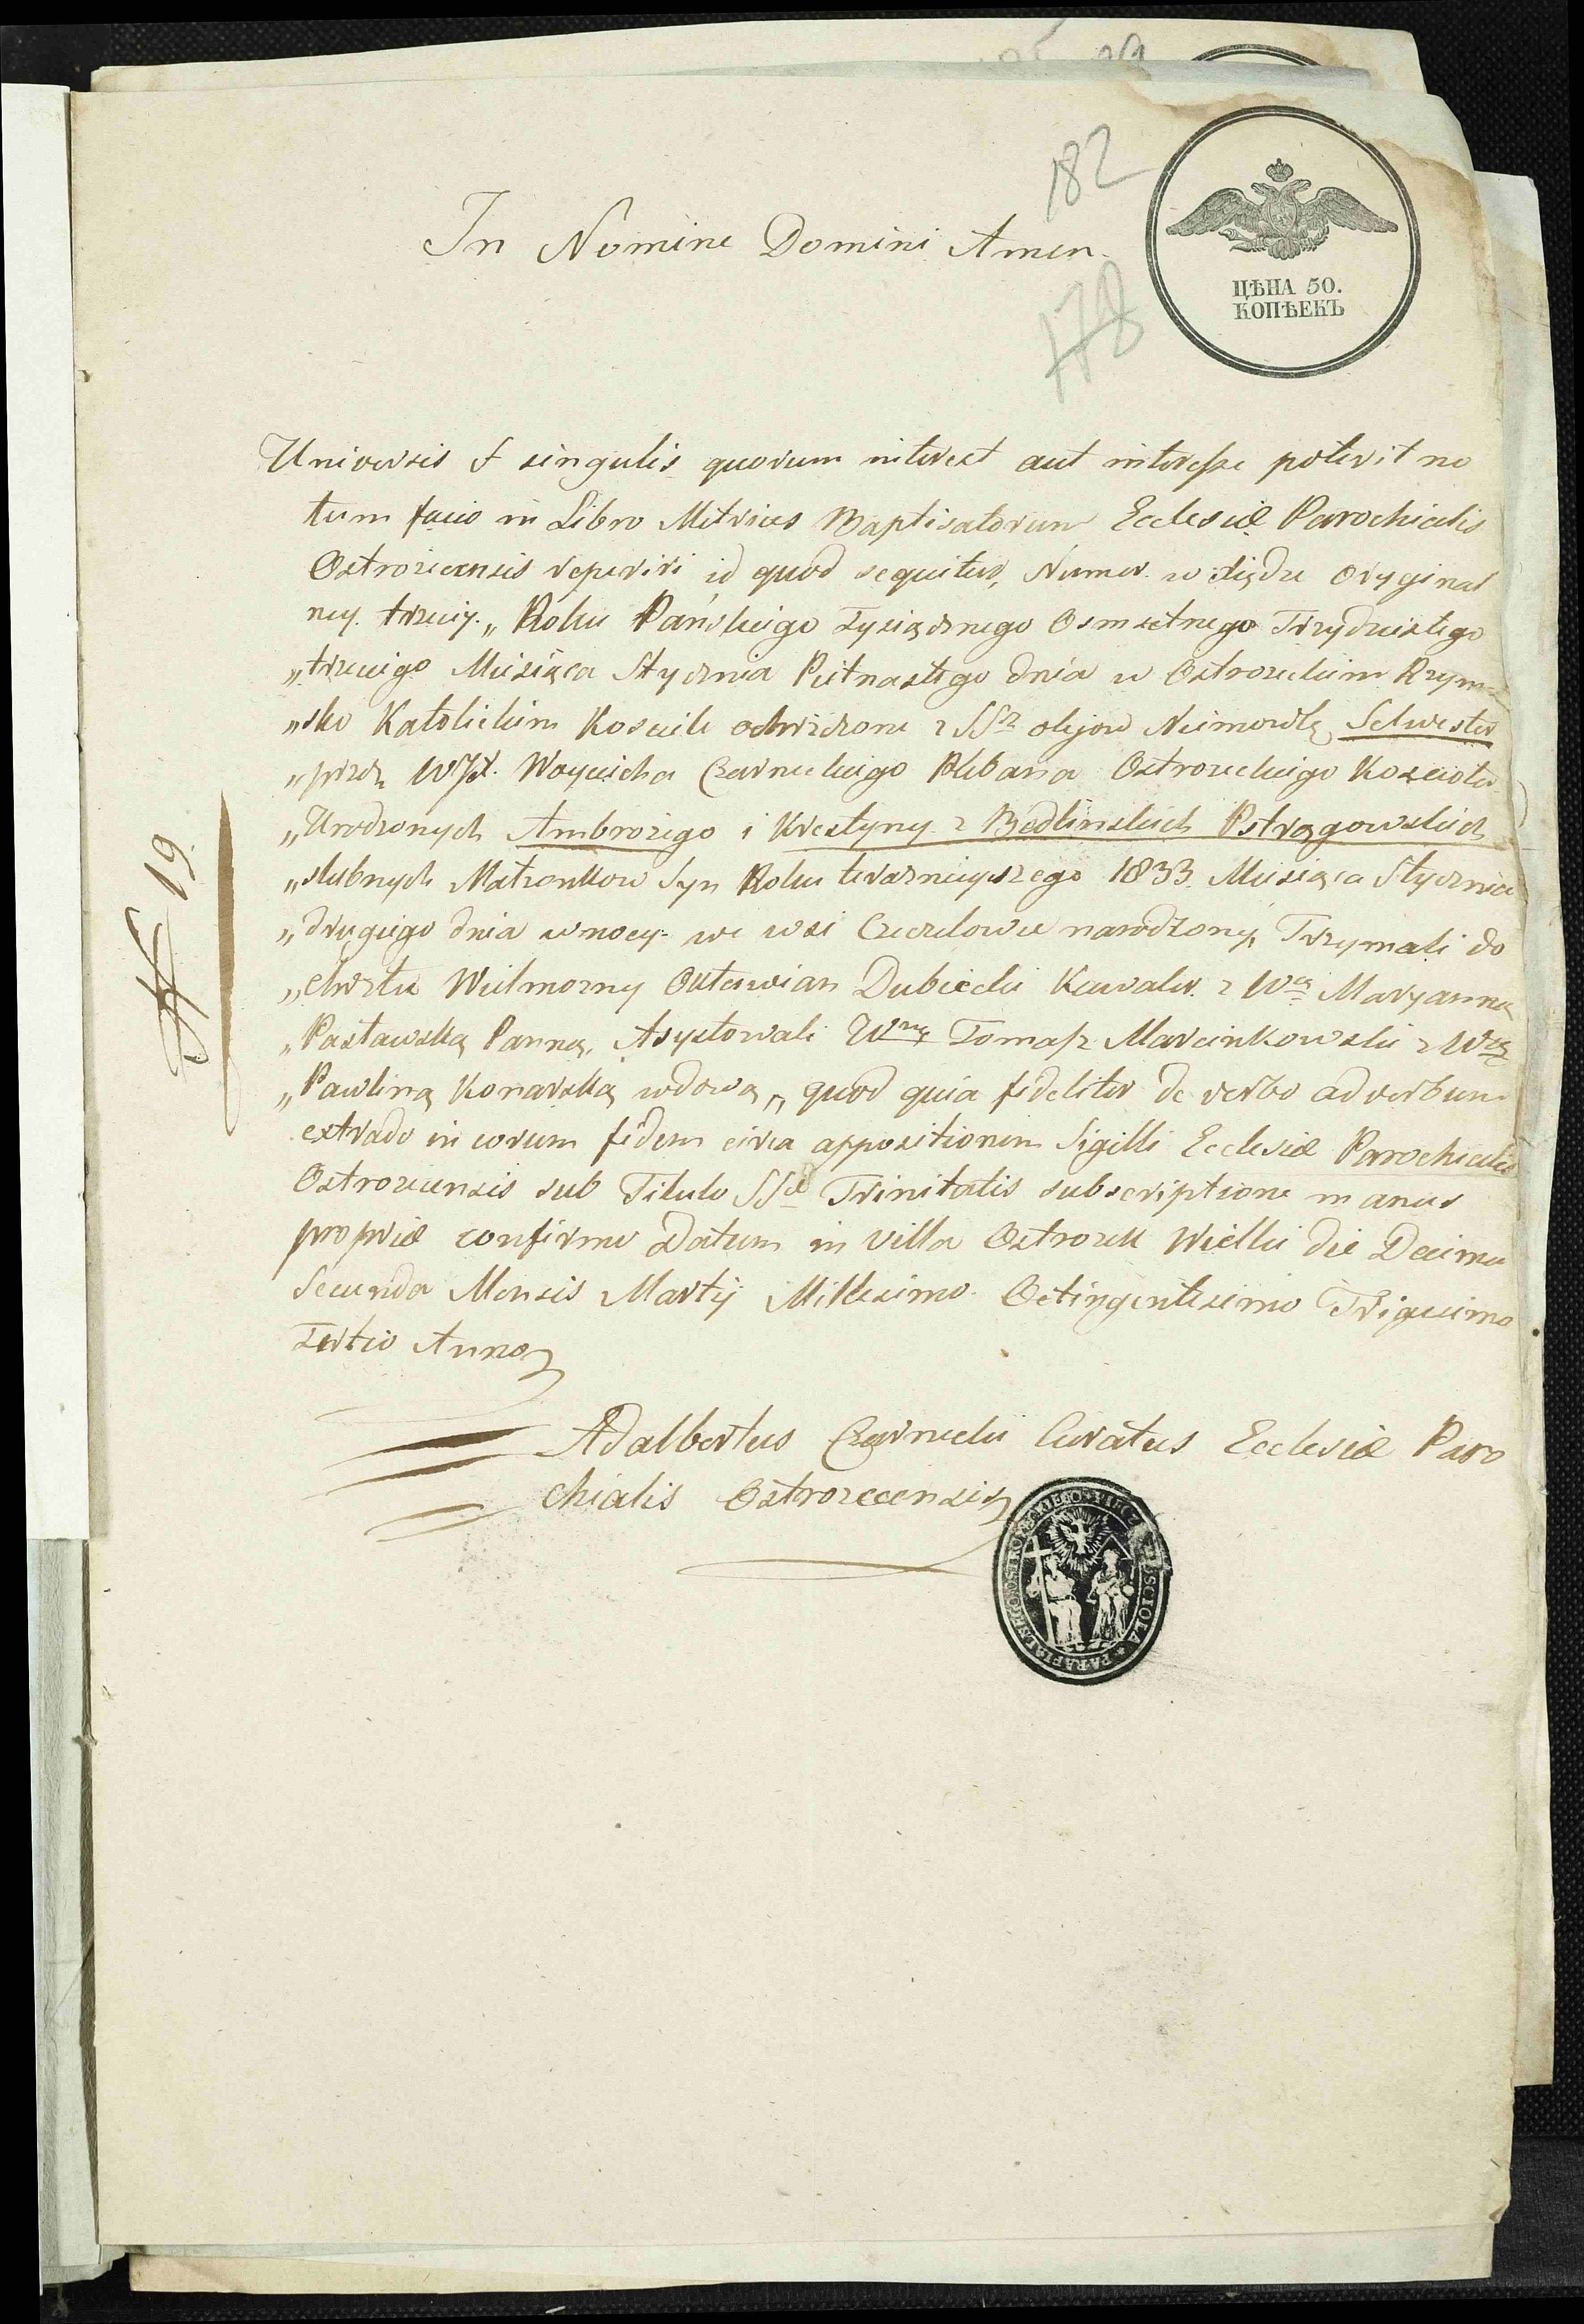 182
In Nomine Domini Amen.
ЦѢНА 50.
КОПѢЕКЪ
178
Universis & singulis quorum interest aut interesse poterit no
tum facio in Libro Metrices Baptisatorum Ecclesiæ Parochialis
Ostrozecensis reperiri id quod sequitur, Numer. w xiędze oryginal
ney trzeciy. „ Roku Pańskiego Tysiącznego Osmsetnego Trzydziestego
„ trzeciego Miesiąca Stycznia Pietnastego dnia w Ostrozeckim Rzym=
„ sko Katolickim Kosciele ochrzczone z SSch olejow Niemowlę Selwester
„ przez WJX. Woyciecha Czarneckiego Plebana Ostrozeckiego Kosciola
„ Urodzonych Ambrożego i Krestyny z Bedlinskich Pstrągowskich
„ slubnych Małzonkow Syn Roku teraznieyszego 1833 Miesiąca Stycznia
„ drugiego dnia w nocy we wsi Czeczelowce narodzony, Trzymali do
„ chrztu Wielmozny Oktawian Dubiecki Kawaler z Wą Maryanną
„ Pasławską Panną, Asystowali Wny Tomasz Marcinkowski z Wną
„ Pawliną Konarską wdową „ quod quia fideliter de verbo ad verbum
extrado in eorum fidem circa appositionem Sigilli Ecclesiæ Parochialis
Ostrozecensis sub Titulo SSæ Trinitatis subscriptione manus
propriæ confirmo Datum in Villa Ostrozek Wielki die Decima
Secunda Mensis Martij Millesimo Octingentesimo Trigesimo
Tertio Anno
Adalbertus Czarnecki Curatus Ecclesiæ Paro
chialis Ostrozecensis
№ 19.